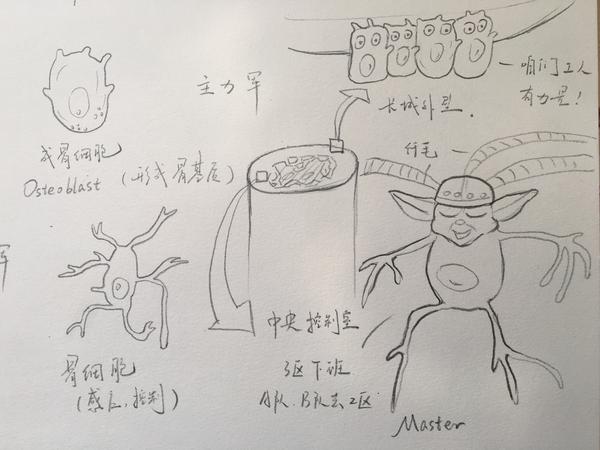 主力军
咱们工人
有力量！
长城外型.
纤毛
成骨细胞
Osteoblast （形成骨基质）
骨细胞
（感应，控制）
中央控制室
3区下班
A队.B队去2区
Master